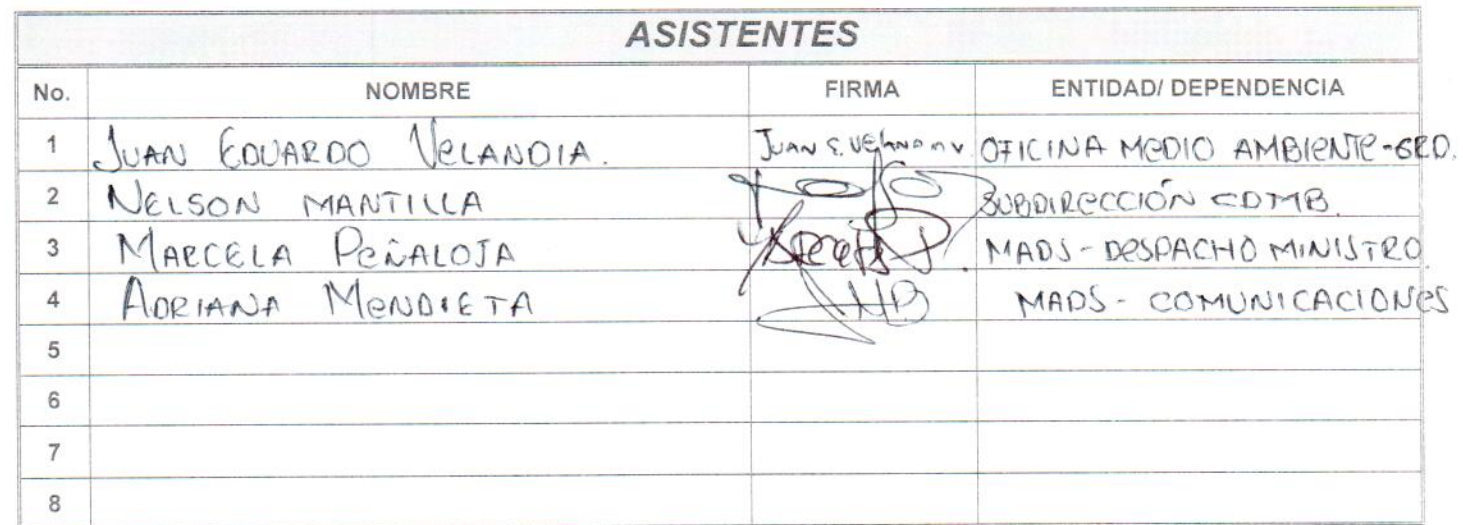 ASISTENTES
No. NOMBRE FIRMA ENTIDAD/ DEPENDENCIA
1 JUAN EDUARDO VELANDIA. JUAN E. VELANDIA V. OFICINA MEDIO AMBIENTE-GRD.
2 NELSON MANTILLA SUBDIRECCIÓN CDMB.
3 MARCELA PEÑALOJA MADS - DESPACHO MINISTRO
4 ADRIANA MENDIETA MADS - COMUNICACIONES
5
6
7
8